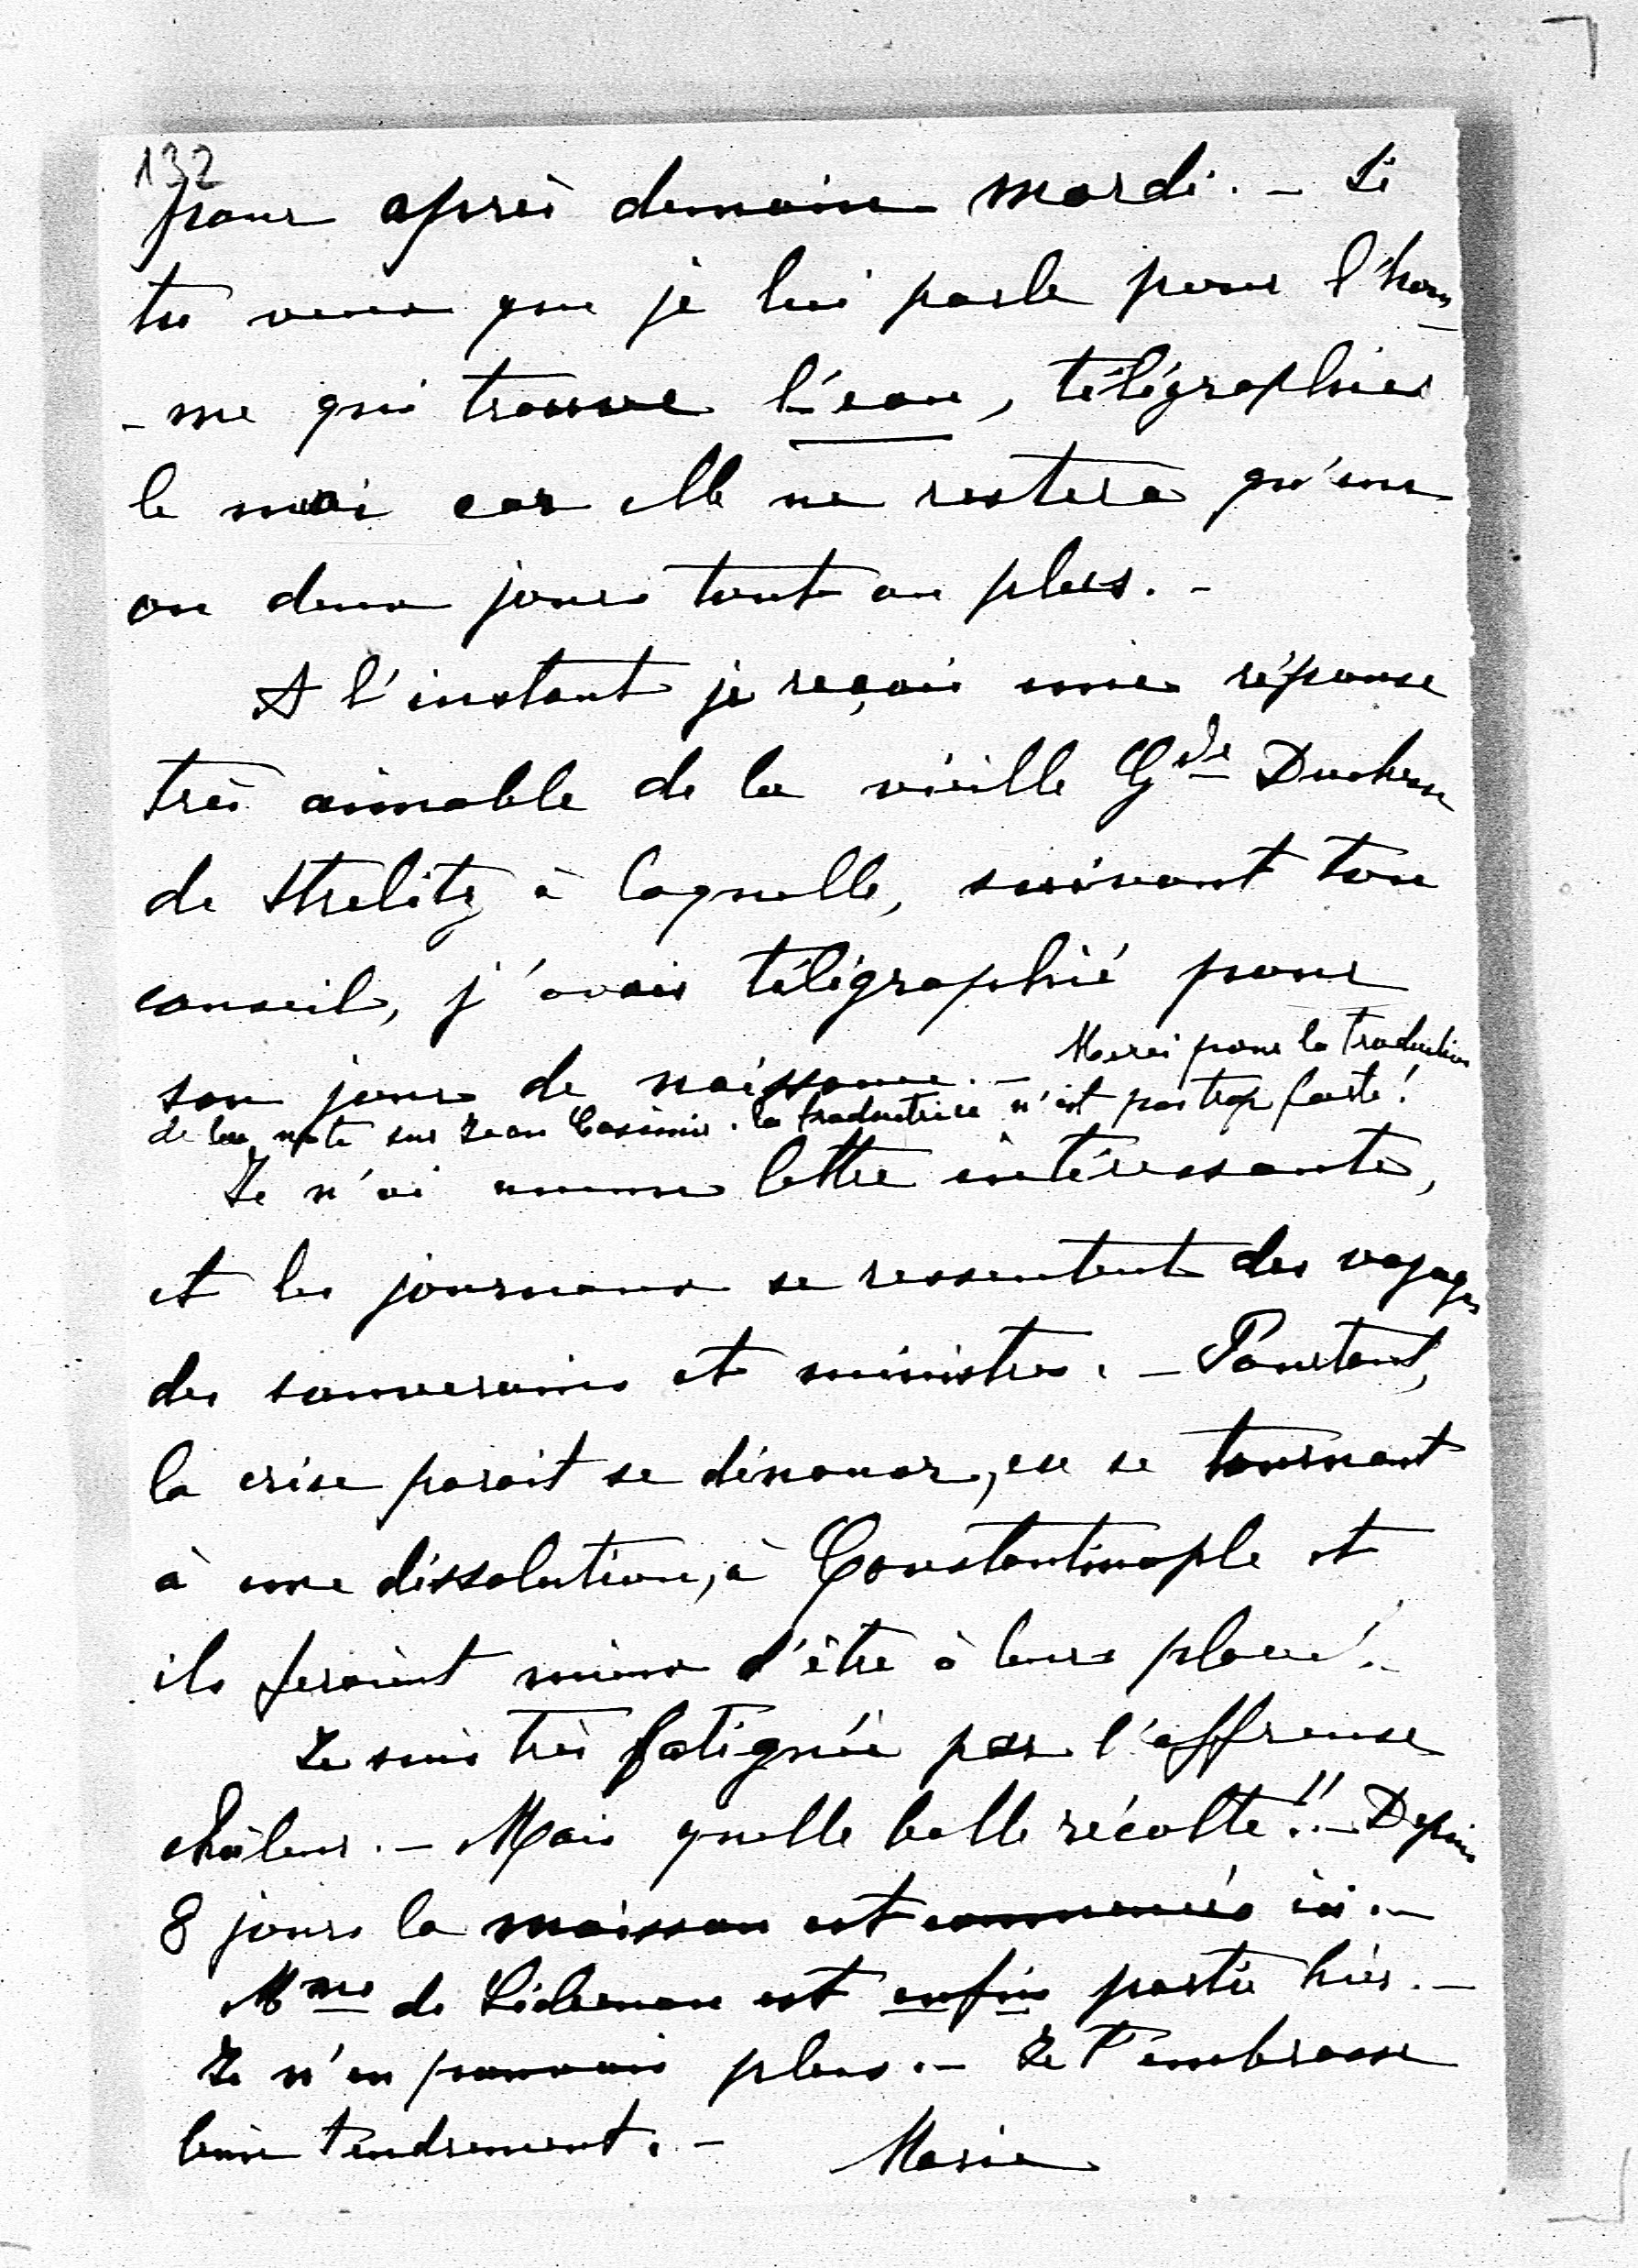 132
pour après demain mardi. — Si
tu veux que je lui parle pour l'hom-
-me qui trouve l'eau, télégraphies
le moi car elle ne restera qu'un
ou deux jours tout au plus. —
A l'instant je reçois une réponse
très aimable de la vieille Gde Duchesse
de Strelitz à laquelle, suivant ton
conseil, j'avais télégraphié pour
son jour de naissance. — Merci pour la traduction
de la note sur Jean Casimir. la traductrice n'est pas trop forte!
Je n'ai aucune lettre intéressante,
et les journaux se ressentent des voyages
des souverains et ministres. — Pourtant,
la crise parait se dénouer, en se tournant
à une dissolution, à Constantinople et
ils feraient mieux d'être à leurs places. —
Je suis très fatiguée par l'affreuse
chaleur. — Mais quelle belle récolte!! — Depuis
8 jours la moisson est commencée ici. —
Mme de est enfin partie hier. —
Je n'en pouvais plus. — Je t'embrasse
bien tendrement. — Marie